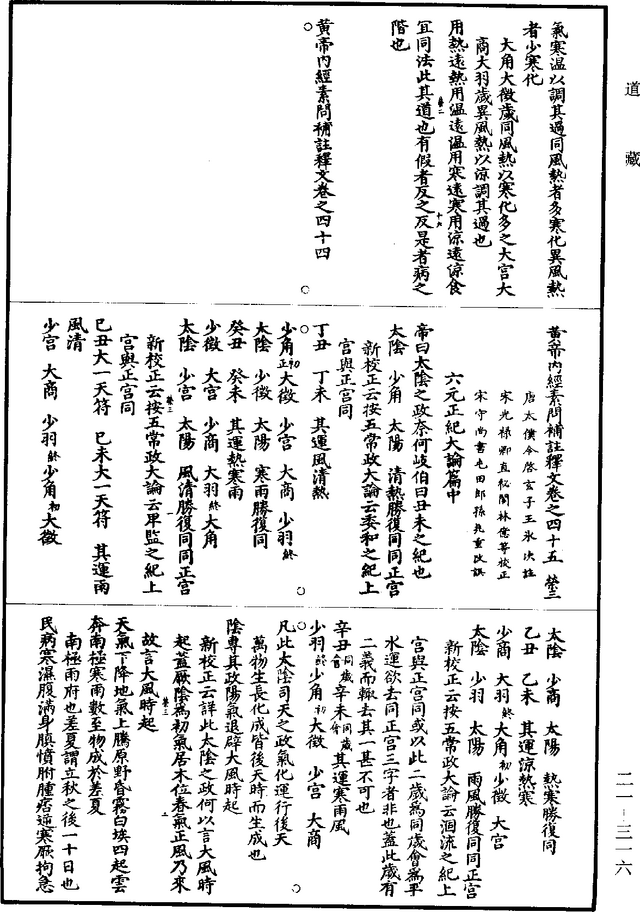 道藏
氣寒温以調其過同風熱者多寒化異風熱
者少寒化
大角大徵歲同風熱以寒化多之大宮大
商大羽歲異風熱以涼調其過也
用熱遠熱用温遠温用寒遠寒用涼遠涼食
宜同法此其道也有假者反之反是者病之
階也
黄帝内經素問補註釋文卷之四十四
黄帝内經素問補註釋文卷之四十五 榮三
唐太僕令啓玄子王氷次註
宋光禄卿直秘閣林億等校正
宋守尚書屯田郎孫兆重改誤
六元正紀大論篇中
帝曰太陰之政奈何岐伯曰丑未之紀也
太陰 少角 太陽 清熱勝復同同正宮
新校正云按五常政大論云委和之紀上
宮與正宮同
丁丑 丁未 其運風清熱
少角初正大徵 少宮 大商 少羽終
太陰 少徵 太陽 寒雨勝復同
癸丑 癸未 其運熱寒雨
少徵 大宮 少商 大羽終大角
太陰 少宮 太陽 風清勝復同同正宮
新校正云按五常政大論云卑監之紀上
宮與正宮同
己丑大一天符 己未大一天符 其運雨
風清
少宮 大商 少羽終少角初大徵
太陰 少商 太陽 熱寒勝復同
乙丑 乙未 其運涼熱寒
少商 大羽終大角初少徵 大宮
太陰 少羽 太陽 雨風勝復同同正宮
新校正云按五常政大論云涸流之紀上
宮與正宮同或以此二歲爲同歲會爲平
水運欲去同正宮三字者非也蓋此歲有
二義而輒去其一甚不可也
辛丑同歲會 辛未同歲會 其運寒雨風
少羽終少角初大徵 少宮 大商
凡此太陰司天之政氣化運行後天
萬物生長化成皆後天時而生成也
陰專其政陽氣退辟大風時起
新校正云詳此太陰之政何以言大風時
起蓋厥陰爲初氣居木位春氣正風乃來
故言大風時起
天氣下降地氣上騰原野昏霿白埃四起雲
奔南極寒雨數至物成於差夏
南極雨府也差夏謂立秋之後一十日也
民病寒濕腹滿身䐜憤胕腫痞逆寒厥拘急
二一-三一六